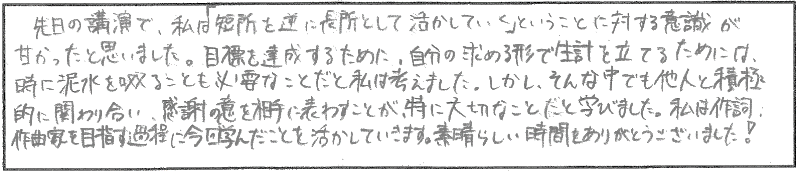 先日の講演で、私は「短所を逆に長所として活かしていく」ということに対する意識が
甘かったと思いました。目標を達成するために、自分の求める形で生計を立てるためには、
時に泥水を吸ることも必要なことだと私は考えました。しかし、そんな中でも他人と積極
的に関わり合い、感謝の意を相手に表わすことが、特に大切なことだと学びました。私は作詞、
作曲家を目指す過程に今回学んだことを活かしていきます。素晴らしい時間をありがとうございました!